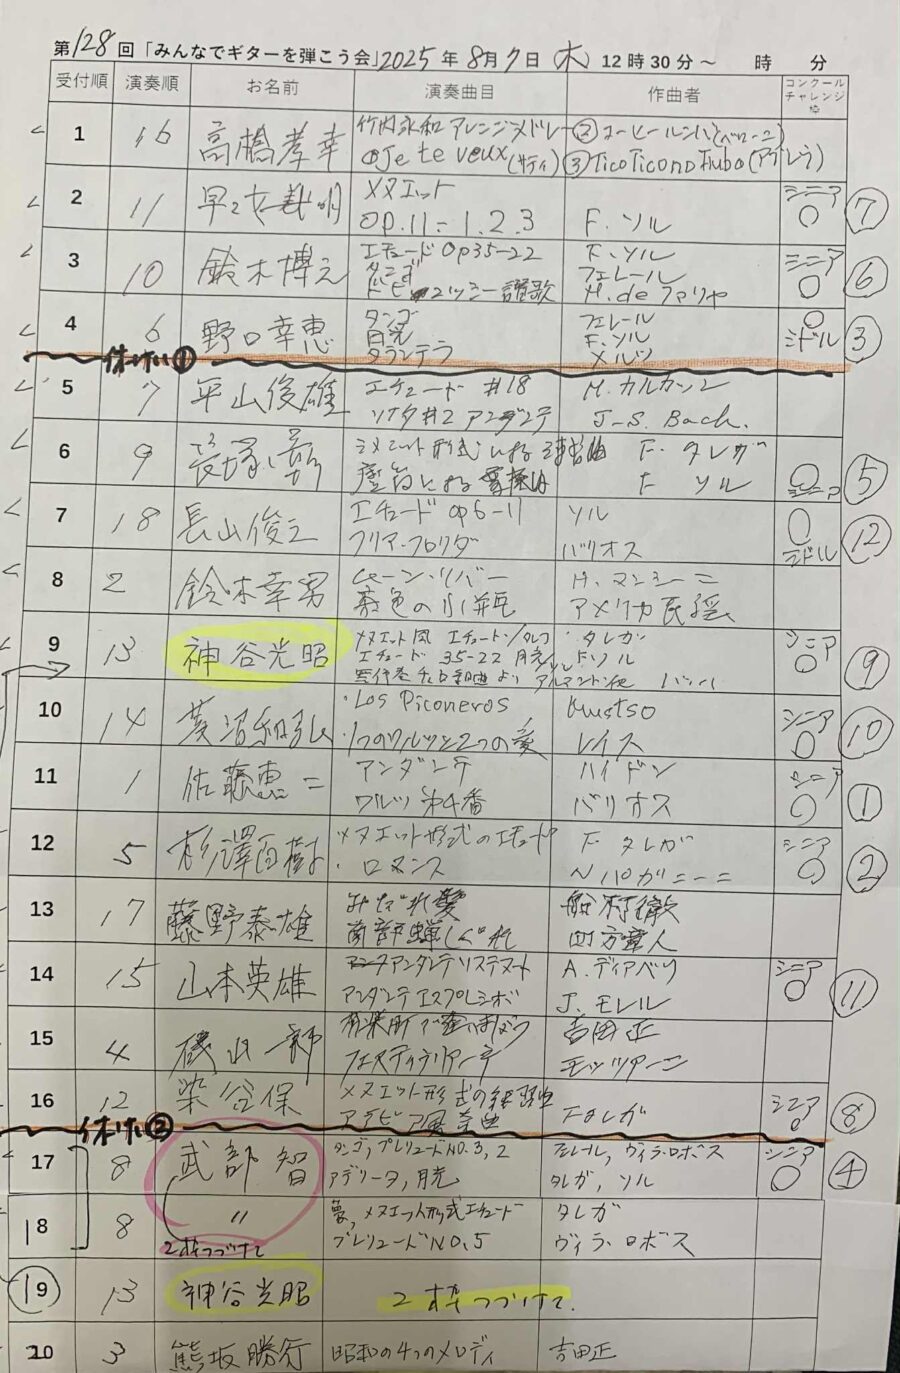 第128回「みんなでギターを弾こう会」2025年8月7日(木) 12時30分～ 時 分
受付順 演奏順 お名前 演奏曲目 作曲者 コンクールチャレンジ枠
1 16 高橋孝幸 竹内永和アレンジメドレー ②コーヒールンバ(ペローニ)
①Je te veux(サティ) ③TicoTicono Fubo(アブレラ)
2 11 早乙女 明 メヌエット シニア ○ ⑦
Op.11-1.2.3 F.ソル
3 10 鈴木博之 エチュード Op35-22 F.ソル シニア ○ ⑥
タンゴ フェレール
ドビュッシー讃歌 M.de ファリャ
4 6 野口幸恵 タンゴ フェレール ○ ミドル ③
月光 F.ソル
タランテラ メルツ
休けい①
5 7 平山俊雄 エチュード #18 M.カルカッシ
ソナタ#2 アンダンテ J-S.Bach.
6 9 長塚 メヌエット形式による練習曲 F.タレガ ○ シニア ⑤
F ソル
7 18 長山俊之 エチード op6-11 ソル ○ ミドル ⑫
フリア・フロリダ バリオス
8 2 鈴木幸男 ムーン・リバー H.マンシーニ
茶色の小瓶 アメリカ民謡
9 13 神谷光昭 メヌエット風 エチュード タレガ シニア ○ ⑨
エチュード 35-22 月光 F.ソル
無伴奏チェロ組曲より アルマンド バッハ
10 14 菱沼和弘 ・Los Piconeros Mustso シニア ○ ⑩
・1つのワルツと2つの愛 レイス
11 1 佐藤恵二 アンダンテ ハイドン シニア ○ ①
ワルツ第4番 バリオス
12 5 杉澤百樹 ・メヌエット形式のエチュード F.タレガ シニア ○ ②
・ロマンス N パガニーニ
13 17 藤野泰雄 みだれ髪 船村徹
蝉しぐれ 四方章人
14 15 山本英雄 アンダンテソステヌート A.ディアベリ シニア ○ ⑪
アンダンテエスプレシボ J.モレル
15 4 磯山 有楽町で逢いましょう 吉田正
モッツァーニ
16 12 染谷保 メヌエット形式の練習曲 シニア ○ ⑧
アラビア風奇想曲 F.タレガ
休けい②
17 8 武部智 タンゴ,プレリュードNO.3,2 フェレール,ヴィラ・ロボス シニア ○ ④
アデリータ,月光 タレガ,ソル
18 8 〃 夢,メヌエット形式エチュード タレガ
2枠つづけて プレリュードNO.5 ヴィラ・ロボス
⑲ 13 神谷光昭 2枠つづけて.
20 3 熊坂勝行 昭和の4つのメロディ 吉田正